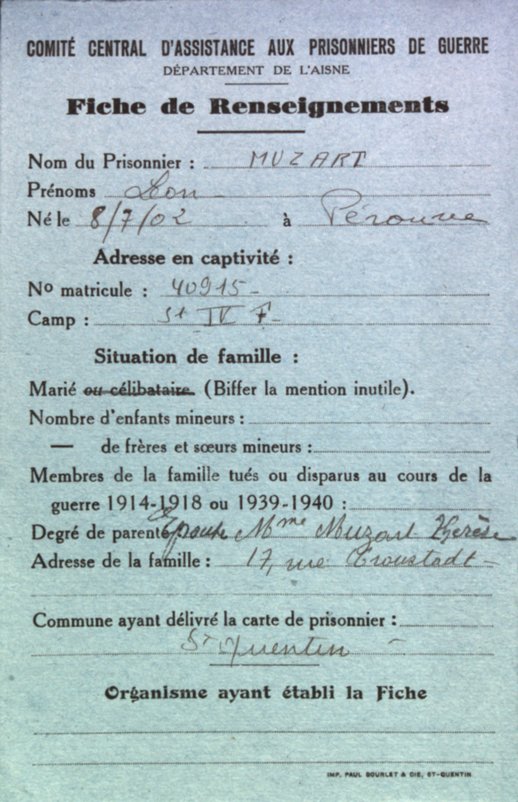 COMITÉ CENTRAL D'ASSISTANCE AUX PRISONNIERS DE GUERRE
DÉPARTEMENT DE L'AISNE
Fiche de Renseignements
Nom du Prisonnier : MUZART
Prénoms Léon
Né le 8/7/02 à Péronne
Adresse en captivité :
No matricule : 40915
Camp : St IV F
Situation de famille :
Marié ou célibataire. (Biffer la mention inutile).
Nombre d'enfants mineurs :
— de frères et sœurs mineurs :
Membres de la famille tués ou disparus au cours de la
guerre 1914-1918 ou 1939-1940 :
Degré de parenté Epouse Mme Muzart Thérèse
Adresse de la famille : 17, rue Cronstadt
Commune ayant délivré la carte de prisonnier :
St Quentin
Organisme ayant établi la Fiche
IMP. PAUL BOURLET & CIE, ST-QUENTIN